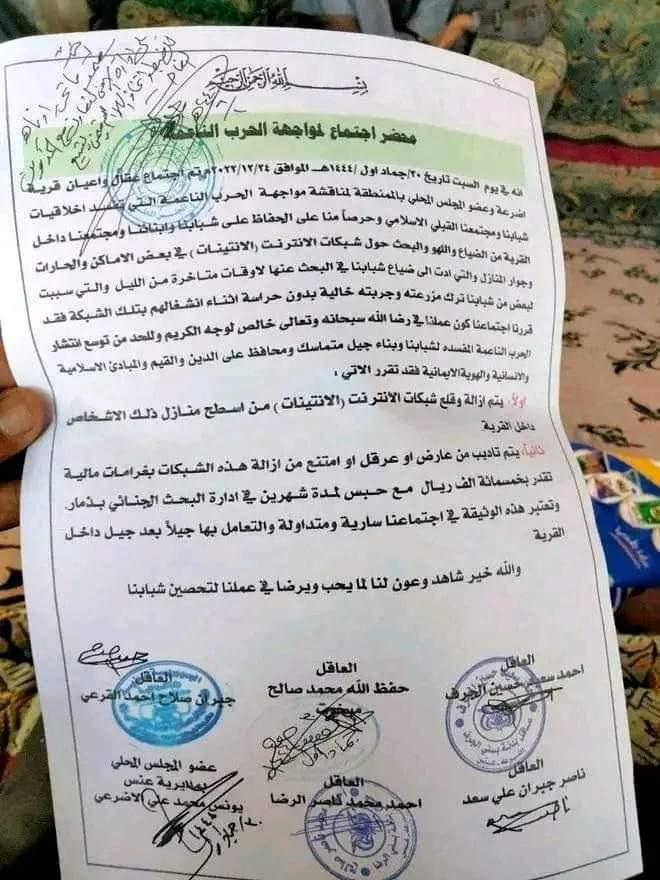 بسم الله الرحمن الرحيم
محضر اجتماع لمواجهة الحرب الناعمة
انه في يوم السبت تاريخ ٣٠/جماد اول /١٤٤٤هـ الموافق ٢٠٢٢/١٢/٢٤م تم اجتماع عقال واعيان قرية
اضرعة وعضو المجلس المحلي بالمنطقة لمناقشة مواجهة الحرب الناعمة التي تفسد اخلاقيات
شبابنا ومجتمعنا القبلي الاسلامي وحرصاً منا على الحفاظ على شبابنا وابنائنا ومجتمعنا داخل
القرية من الضياع واللهو والبحث حول شبكات الانترنت (الانتينات) في بعض الاماكن والحارات
وجوار المنازل والتي ادت الى ضياع شبابنا في البحث عنها لاوقات متاخرة من الليل والتي سببت
لبعض من شبابنا ترك مزرعته وجربته خالية بدون حراسة اثناء انشغالهم بتلك الشبكة فقد
قررنا اجتماعنا كون عملنا في رضا الله سبحانه وتعالى خالص لوجه الكريم وللحد من توسع انتشار
الحرب الناعمة المفسده لشبابنا وبناء جيل متماسك ومحافظ على الدين والقيم والمبادئ الاسلامية
والانسانية والهوية الايمانية فقد تقرر الاتي :
اولاً: يتم ازالة وقلع شبكات الانترنت (الانتينات) من اسطح منازل ذلك الاشخاص
داخل القرية
ثانياً: يتم تاديب من عارض او عرقل او امتنع من ازالة هذه الشبكات بغرامات مالية
تقدر بخمسمائة الف ريال مع حبس لمدة شهرين في ادارة البحث الجنائي بذمار
وتعتبر هذه الوثيقة في اجتماعنا سارية ومتداولة والتعامل بها جيلاً بعد جيل داخل
القرية
والله خير شاهد وعون لنا لما يحب ويرضا في عملنا لتحصين شبابنا
العاقل
احمد سعد حسين الجرف
العاقل
حفظ الله محمد صالح
العاقل
جبران صلاح احمد القرعي
العاقل
ناصر جبران علي سعد
العاقل
احمد محمد ناصر الرضا
عضو المجلس المحلي
بمديرية عنس
يونس محمد علي الاضرعي